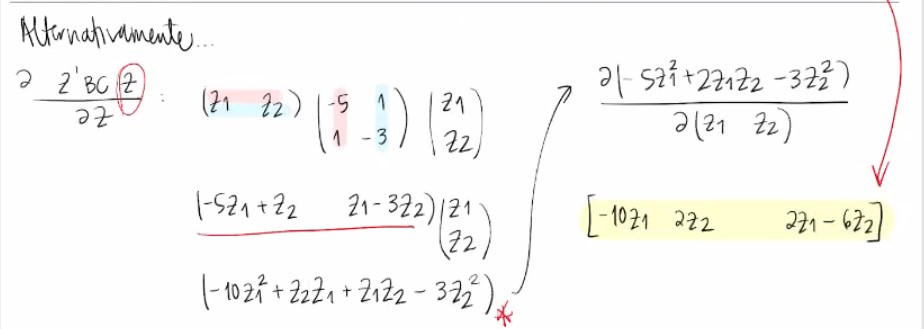 Alternativamente...
∂ Z'BC Z / ∂Z :
(Z1 Z2) (-5 1
1 -3) (Z1
Z2)
(-5Z1+Z2 Z1-3Z2) (Z1
Z2)
(-10Z1²+Z2Z1+Z1Z2-3Z2²) *
∂(-5Z1²+2Z1Z2-3Z2²)
∂(Z1 Z2)
[-10Z1 2Z2 2Z1-6Z2]